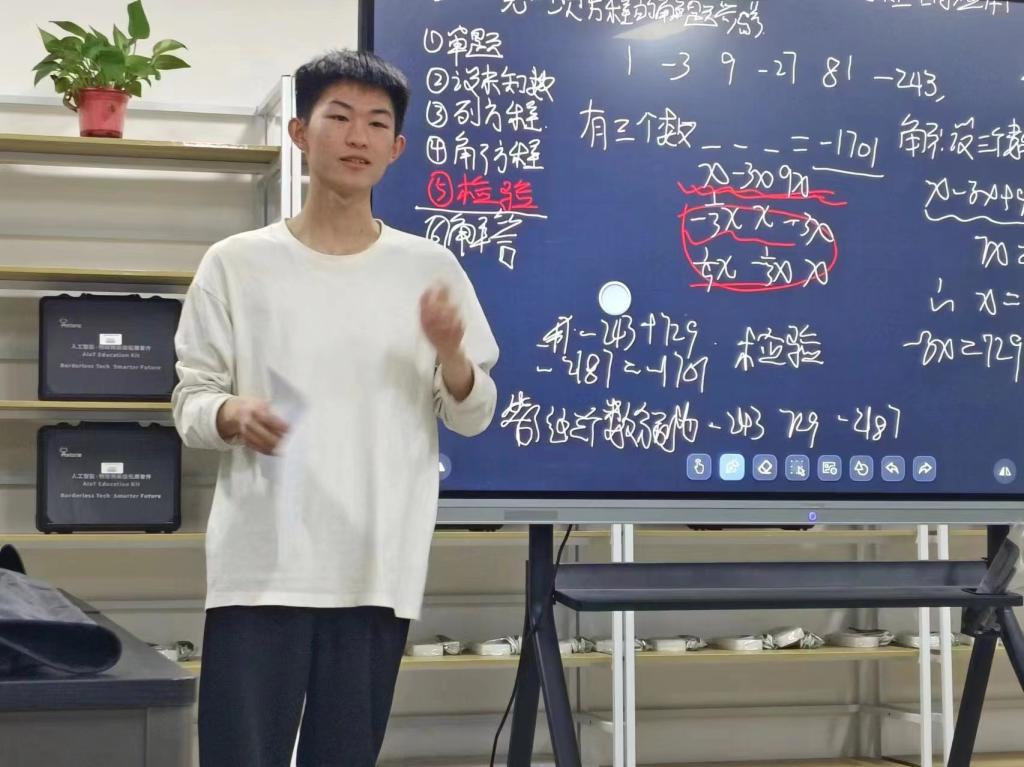 元一次方程的解题步骤
①审题
②设未知数
③列方程
④解方程
⑤检验
⑥解答
1 -3 9 -27 81 -243,
有三个数_ _ _ = -1701
x -3x 9x
-1/3x x -3x
1/9x -1/3x x
-243+729
-2187=-1701
检验
答 这三个数分别为 -243 729 -2187
解:设三个数
x-3x+9
7x=
∴ x=
-3x=729
人工智能·物联网
AIoT Education Kit
Borderless Tech Smarter Future
人工智能·物联网
AIoT Education Kit
Borderless Tech Smarter Future